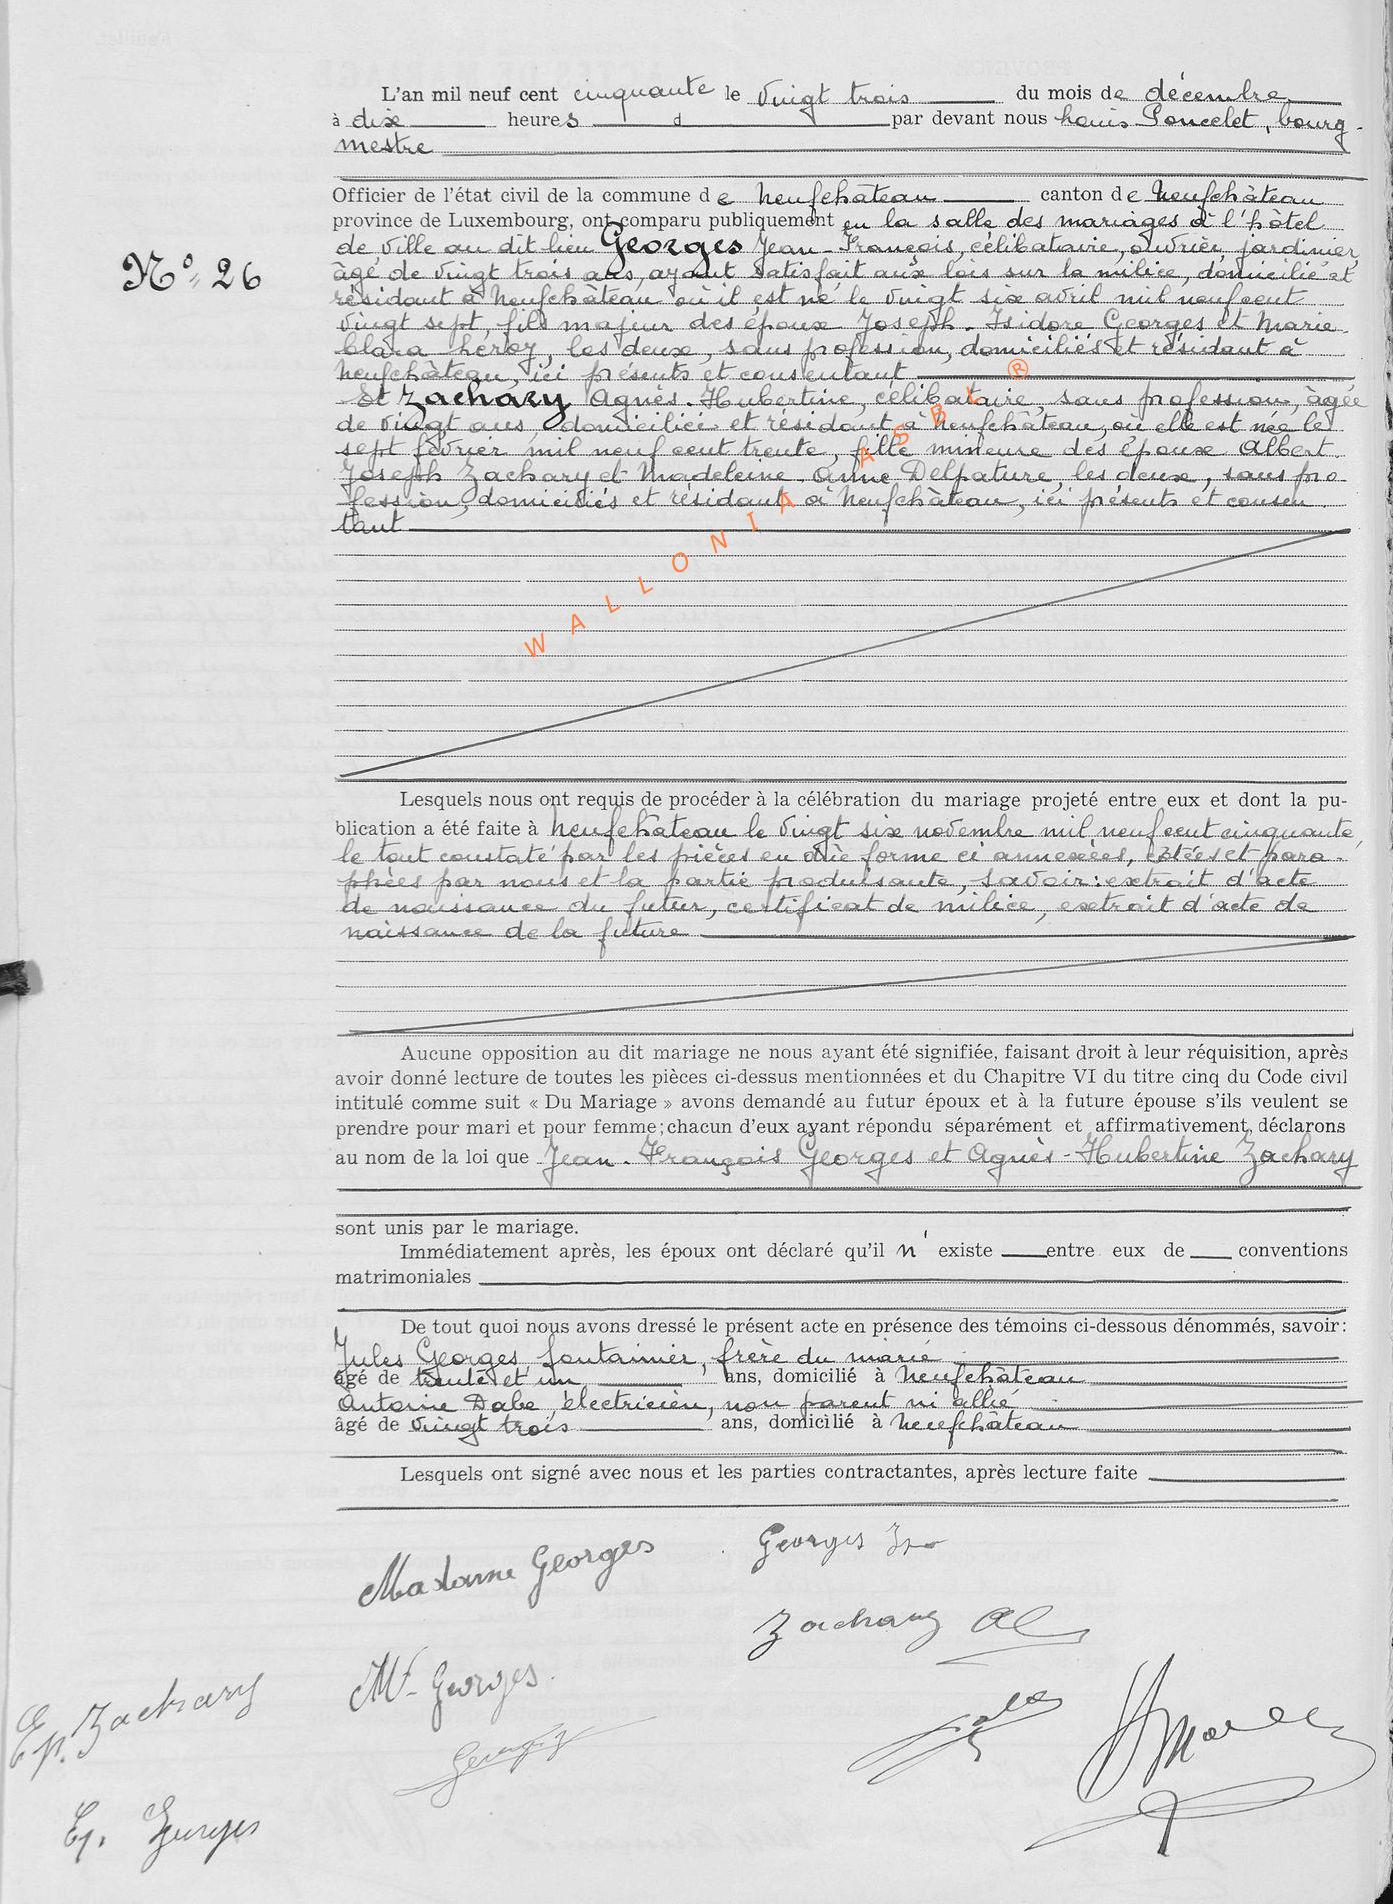 L'an mil neuf cent cinquante le vingt trois du mois de décembre
à dix heures d par devant nous Louis Poncelet, bourg-
mestre
Officier de l'état civil de la commune de Neufchâteau canton de Neufchâteau
province de Luxembourg, ont comparu publiquement en la salle des mariages à l'hôtel
de ville au dit lieu Georges Jean-François, célibataire, ouvrier jardinier,
N° 26
âgé de vingt trois ans, ayant satisfait aux lois sur la milice, domicilié et
résidant à Neufchâteau où il est né le vingt six avril mil neuf cent
vingt sept, fils majeur des époux Joseph-Isidore Georges et Marie-
Clara Léroy, les deux, sans profession, domiciliés et résidant à
Neufchâteau, ici présents et consentant
Et Zachary Agnès-Hubertine, célibataire, sans profession, âgée
de vingt ans, domiciliée et résidant à Neufchâteau, où elle est née le
sept février mil neuf cent trente, fille mineure des époux Albert
Joseph Zachary et Madeleine-Anne Delpature, les deux, sans pro-
fession, domiciliés et résidant à Neufchâteau, ici présents et consen-
tant
WALLONIA ASBL ®
Lesquels nous ont requis de procéder à la célébration du mariage projeté entre eux et dont la pu-
blication a été faite à Neufchâteau le vingt six novembre mil neuf cent cinquante
le tout constaté par les pièces en due forme ci annexées, cotées et para-
phées par nous et la partie produisante, savoir: extrait d'acte
de naissance du futur, certificat de milice, extrait d'acte de
naissance de la future
Aucune opposition au dit mariage ne nous ayant été signifiée, faisant droit à leur réquisition, après
avoir donné lecture de toutes les pièces ci-dessus mentionnées et du Chapitre VI du titre cinq du Code civil
intitulé comme suit « Du Mariage » avons demandé au futur époux et à la future épouse s'ils veulent se
prendre pour mari et pour femme; chacun d'eux ayant répondu séparément et affirmativement, déclarons
au nom de la loi que Jean-François Georges et Agnès-Hubertine Zachary
sont unis par le mariage.
Immédiatement après, les époux ont déclaré qu'il n'existe entre eux de conventions
matrimoniales
De tout quoi nous avons dressé le présent acte en présence des témoins ci-dessous dénommés, savoir:
Jules Georges, fontainier, frère du marié
âgé de trente et un ans, domicilié à Neufchâteau
Antoine Dabe, électricien, non parent ni allié
âgé de vingt trois ans, domicilié à Neufchâteau
Lesquels ont signé avec nous et les parties contractantes, après lecture faite
Madame Georges Georges
Zachary Al
Ep. Zachary Mr Georges
Ep. Georges